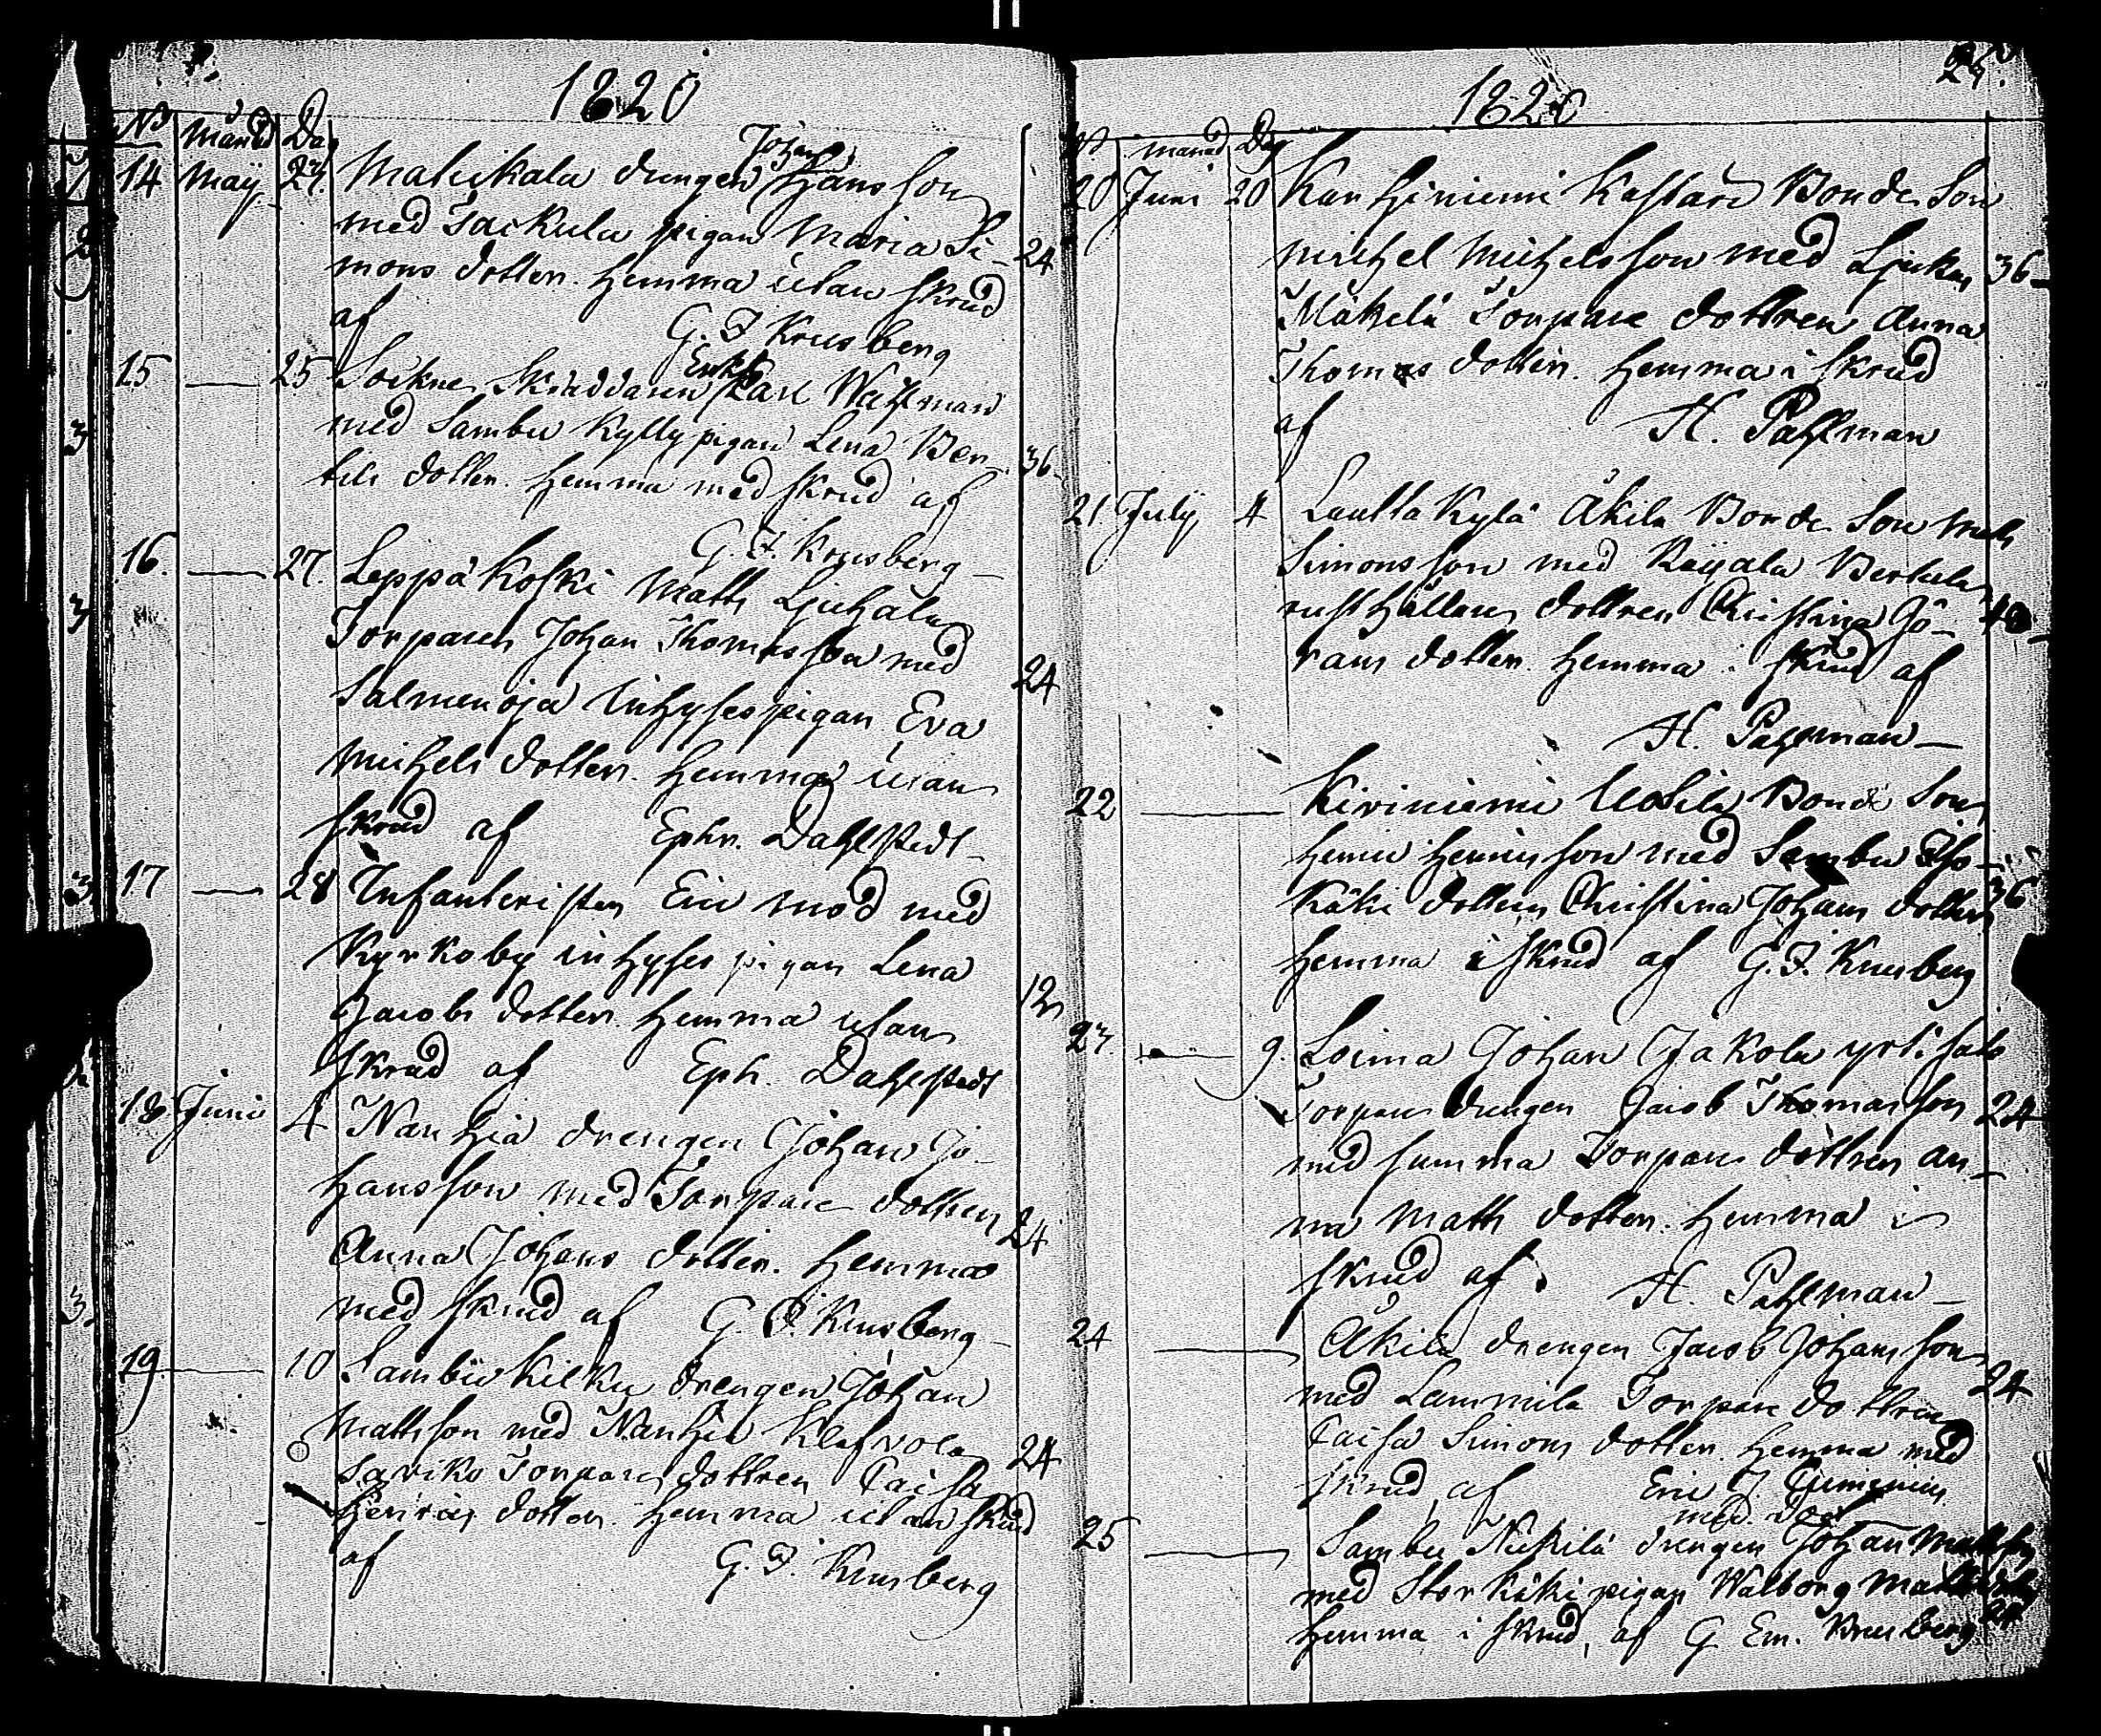 1820
No Månad Dag
Johan
14 May 24. Mahikala drengen Hans son
med Saikula pigan Maria Si- 24
mons dotter. hemma utan skrud
af G. F. Krusberg
Enkl.
15 — 25 Sockne Skräddaren Karl Wahlman
med Sambu Kylly pigan Lena Ber- 36
tils dotter. hemma med skrud af
G. F. Krusberg
16. — 27. Leppäkoski Matts Ljuhala
Torparen Johan Thomasson med 24
Salmenoja Inhyses pigan Eva
Michels dotter. hemma utan
skrud af Ephr. Dahlstedt
17 — 28 Infanteristen Eric Mod med
Kyrkoby inhyses pigan Lena
Jacobs dotter. hemma utan 12
skrud af Eph. Dahlstedt
18 Juni 4 Nanhia drengen Johan Jo-
hansson med Torpare dottren 24
Anna Johans dotter. hemma
med skrud af G. F. Krusberg
19 — 10 Sambu Kilku drengen Johan
Mattsson med Nanhia Klafvola 24
Saviko Torpare dottren Caisa
Henrics dotter. hemma utan skrud
af G. F. Krusberg
25.
1820
No Månad Dag
20 Juni 20 Karhiniemi Kassari Bonde Son
Michel Michelsson med Ljuku 36
Mäkelä Torpare dottren Anna
Thomas dotter. hemma i skrud
af H. Pahlman
21 July 4 Lauttakylä Äkilä Bonde Son Matts
Simonsson med Raijala Bertula
rusthållare dottren Christina Jö- 48
rans dotter. hemma i skrud af
H. Pahlman
22 — Kiviniemi Uotila Bonde Son
Henric Henricsson med Sambu Iso-
Käki dottren Christina Johans dotter 36
hemma i skrud af G. F. Krusberg
23. — 9. Loima Johan Jakola yli salo
Torpare drengen Jacob Thomasson 24
med summa Torpare dottren An-
na Matts dotter. hemma i
skrud af H. Pahlman
24 — Äkilä drengen Jacob Johansson 24
med Lammila Torpare dottren
Caisa Simons dotter. hemma med
skrud af Eric J.
25 — Sambu Nikilä drengen Johan Mattsson
med Storkäki pigan Walborg Matts dotter
hemma i skrud, af G. Em. Krusberg 24